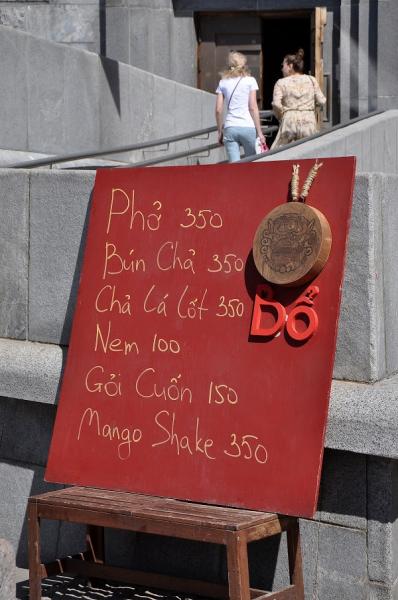 Phở 350
Bún Chả 350
Chả Lá Lốt 350
Nem 100
Gỏi Cuốn 150
Mango Shake 350